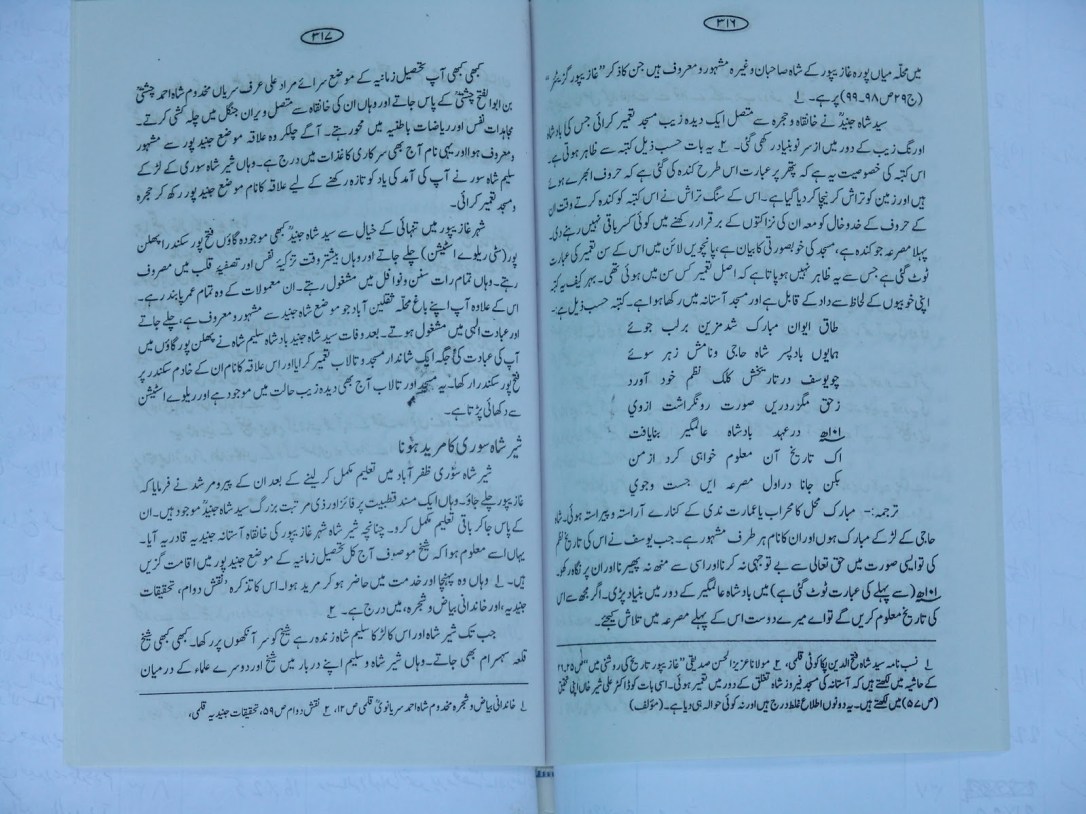 ۳۱۶
میں محلہ میاں پورہ غازیپور کے شاہ صاحبان وغیرہ مشہور و معروف ہیں جن کا ذکر ”غازیپور گزیٹر“
(ج۲۹ص۹۸۔۹۹) پر ہے۔ ۱؎
سید شاہ جنیدؒ نے خانقاہ و حجرہ سے متصل ایک دیدہ زیب مسجد تعمیر کرائی جس کی بادشاہ
اورنگ زیب کے دور میں از سر نو بنیاد رکھی گئی۔ ۲؎ یہ بات حسب ذیل کتبہ سے ظاہر ہوتی ہے۔
اس کتبہ کی خصوصیت یہ ہے کہ پتھر پر عبارت اس طرح کندہ کی گئی ہے کہ حروف ابھرے ہوئے
ہیں اور زمین کو تراش کر نیچا کر دیا گیا ہے۔ اس کے سنگ تراش نے اس کتبہ کو کندہ کرتے وقت ان
کے حروف کے خدوخال کو معہ ان کی نزاکتوں کے برقرار رکھنے میں کوئی کسر باقی نہیں رہنے دی۔
پہلا مصرعہ جو کندہ ہے، مسجد کی خوبصورتی کا بیان ہے، پانچویں لائن میں اس کے سن تعمیر کی عبارت
ٹوٹ گئی ہے جس سے یہ ظاہر نہیں ہو پاتا ہے کہ اصل تعمیر کس سن میں ہوئی تھی۔ بہر کیف یہ کتبہ
اپنی خوبیوں کے لحاظ سے داد کے قابل ہے اور مسجد آستانہ میں رکھا ہوا ہے۔ کتبہ حسب ذیل ہے:۔
طاق ایوان مبارک شد مزین برلب جوئے
ہمایوں باد پسر شاہ حاجی و نامش زہر سوئے
چو یوسف در تاریخش کلک نظم خود آورد
زحق مگزر دریں صورت رونگراشت ازوي
۱۰۱ھ درعہد بادشاہ عالمگیر بنایافت
اک تاریخ آں معلوم خواہی کرد ازمن
بکن جانا دراول مصرعہ ایں جست وجوي
ترجمہ:۔ مبارک محل کا محراب یا عمارت ندی کے کنارے آراستہ و پیراستہ ہوئی۔ شاہ
حاجی کے لڑکے مبارک ہوں اور ان کا نام ہر طرف مشہور ہے۔ جب یوسف نے اس کی تاریخ نظم
کی تو ایسی صورت میں حق تعالی سے بے توجہی نہ کرنا اور اسی سے منھ نہ پھیرنا اور ان پر نگاہ رکھو۔
۱۰۱ھ (سے پہلے کی عبارت ٹوٹ گئی ہے) میں بادشاہ عالمگیر کے دور میں بنیاد پڑی۔ اگر مجھ سے اس
کی تاریخ معلوم کریں گے تو اے میرے دوست اس کے پہلے مصرعہ میں تلاش کیجئے۔
۱؎ نسب نامہ سید شاہ فتح الدین پکا کوئی قلمی، ۲؎ مولانا عزیز الحسن صدیقی ”غازیپور تاریخ کی روشنی میں“ ص ۲۱،۲۵
کے حاشیہ میں لکھتے ہیں کہ آستانہ کی مسجد فیروز شاہ تغلق کے دور میں تعمیر ہوئی۔ اسی بات کو ڈاکٹر علی شیر خاں اپنی
(ص۵۷) میں لکھتے ہیں۔ یہ دونوں اطلاع غلط درج ہیں اور نہ کوئی حوالہ ہی دیا ہے۔ (مؤلف)
۳۱۷
کبھی کبھی آپ تحصیل زمانیہ کے موضع سرائے مراد علی عرف سریاں مخدوم شاہ احمد چشتیؒ
بن ابوالفتح چشتیؒ کے پاس جاتے اور وہاں ان کی خانقاہ سے متصل ویران جنگل میں چلہ کشی کرتے۔
مجاہدات نفس اور ریاضات باطنیہ میں محو رہتے۔ آگے چلکر وہ علاقہ موضع جنید پور سے مشہور
و معروف ہوا اور یہی نام آج بھی سرکاری کاغذات میں درج ہے۔ وہاں شیر شاہ سوری کے لڑکے
سلیم شاہ سور نے آپ کی آمد کی یاد کو تازہ رکھنے کے لیے علاقہ کا نام موضع جنید پور رکھ کر حجرہ
و مسجد تعمیر کرائی۔
شہر غازیپور میں تنہائی کے خیال سے سید شاہ جنیدؒ کبھی موجودہ گاؤں فتح پور سکندرا پھلن
پور (سٹی ریلوے اسٹیشن) چلے جاتے اور وہاں بیشتر وقت تزکیۂ نفس اور تصفیۂ قلب میں مصروف
رہتے۔ وہاں تمام رات سنن و نوافل میں مشغول رہتے۔ ان معمولات کے وہ تمام عمر پابند رہے۔
اس کے علاوہ آپ اپنے باغ محلہ ثقلین آباد جو موضع شاہ جنید سے مشہور و معروف ہے، چلے جاتے
اور عبادت الٰہی میں مشغول ہوتے۔ بعد وفات سید شاہ جنید بادشاہ سلیم شاہ نے پھلن پور گاؤں میں
آپ کی عبادت کی جگہ ایک شاندار مسجد و تالاب تعمیر کرایا اور اس علاقہ کا نام ان کے خادم سکندر پر
فتح پور سکندر رکھا۔ یہ مسجد اور تالاب آج بھی دیدہ زیب حالت میں موجود ہے اور ریلوے اسٹیشن
سے دکھائی پڑتا ہے۔
شیر شاہ سوری کا مرید ہونا
شیر شاہ سوری ظفر آباد میں تعلیم مکمل کر لینے کے بعد ان کے پیر و مرشد نے فرمایا کہ
غازیپور چلے جاؤ۔ وہاں ایک مسند قطبیت پر فائز اور ذی مرتبت بزرگ سید شاہ جنیدؒ موجود ہیں۔ ان
کے پاس جا کر باقی تعلیم مکمل کرو۔ چنانچہ شیر شاہ شہر غازیپور کی خانقاہ آستانہ جنیدیہ قادریہ آیا۔
یہاں اسے معلوم ہوا کہ شیخ موصوف آج کل تحصیل زمانیہ کے موضع جنید پور میں اقامت گزیں
ہیں۔ ۱؎ وہاں وہ پہنچا اور خدمت میں حاضر ہو کر مرید ہوا۔ اس کا تذکرہ ’نقش دوام، تحقیقات
جنیدیہ، اور خاندانی بیاض و شجرہ، میں درج ہے۔ ۲؎
جب تک شیر شاہ اور اس کا لڑکا سلیم شاہ زندہ رہے شیخ کو سر آنکھوں پر رکھا۔ کبھی کبھی شیخ
قلعہ سہسرام بھی جاتے۔ وہاں شیر شاہ و سلیم اپنے دربار میں شیخ اور دوسرے علماء کے درمیان
۱؎ خاندانی بیاض و شجرہ مخدوم شاہ احمد سریانویؒ قلمی ص ۱۲، ۲؎ نقش دوام ص ۵۹، تحقیقات جنیدیہ قلمی،